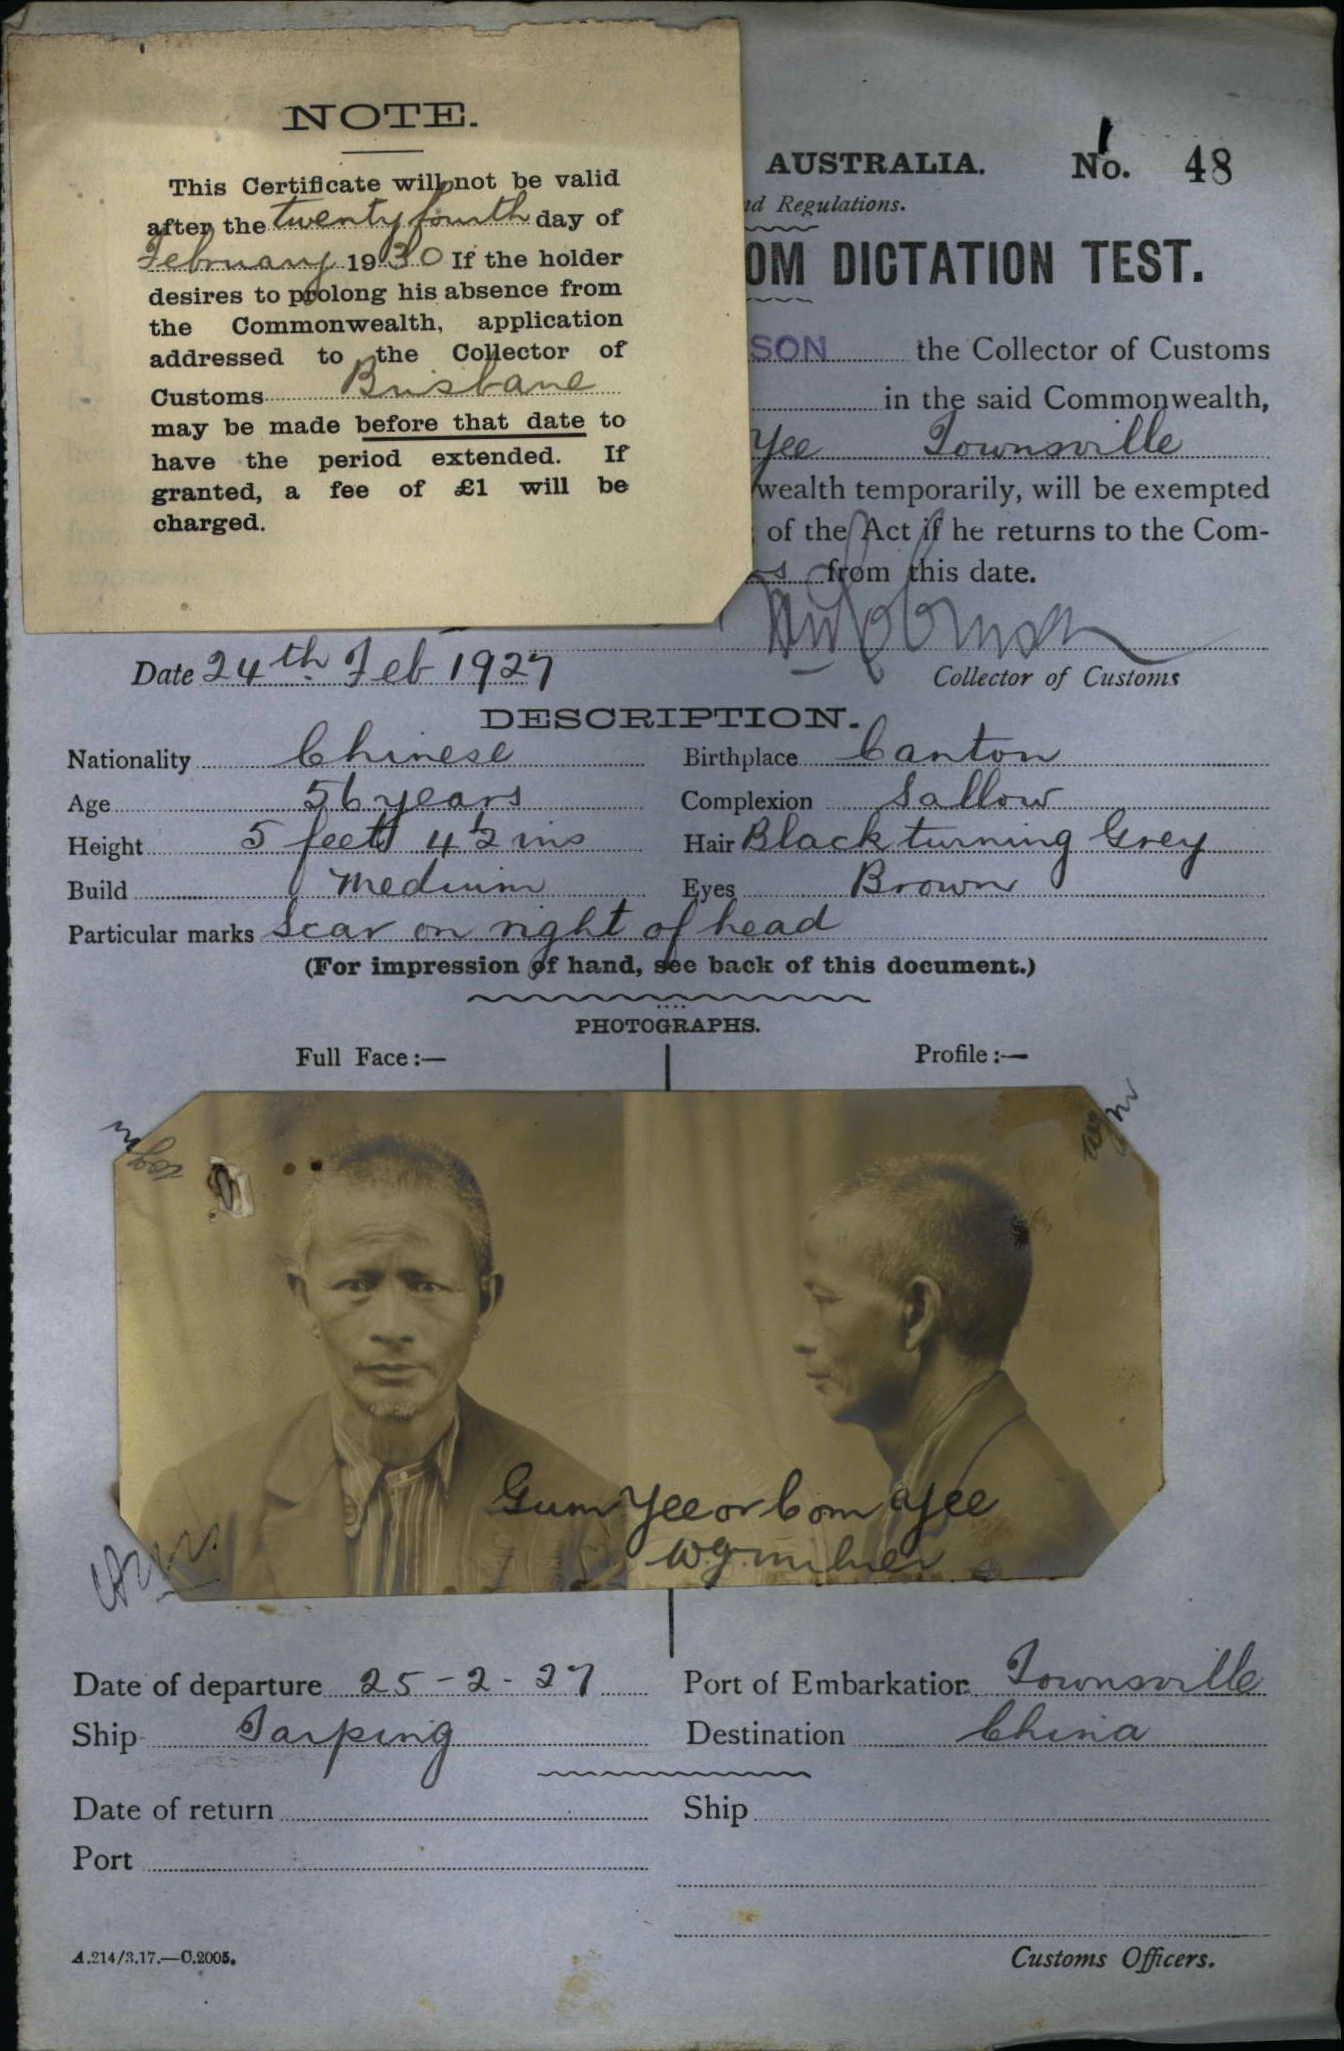 NOTE.
This Certificate will not be valid
after the twenty fourth day of
February 1930 If the holder
desires to prolong his absence from
the Commonwealth, application
addressed to the Collector of
Customs Brisbane
may be made before that date to
have the period extended. If
granted, a fee of £1 will be
charged.
AUSTRALIA. No. 48
nd Regulations.
OM DICTATION TEST.
SON the Collector of Customs
in the said Commonwealth,
Yee Townsville
wealth temporarily, will be exempted
of the Act if he returns to the Com-
from this date.
Date 24th Feb 1927
Collector of Customs
DESCRIPTION.
Nationality Chinese Birthplace Canton
Age 56 years Complexion Sallow
Height 5 feet 4½ ins Hair Black turning Grey
Build Medium Eyes Brown
Particular marks Scar on right of head
(For impression of hand, see back of this document.)
PHOTOGRAPHS.
Full Face:— Profile:—
Gum Yee or Com Yee
W.J. Milner
Date of departure 25-2-27 Port of Embarkation Townsville
Ship Taiping Destination China
Date of return Ship
Port
A.214/3.17.—C.2005. Customs Officers.